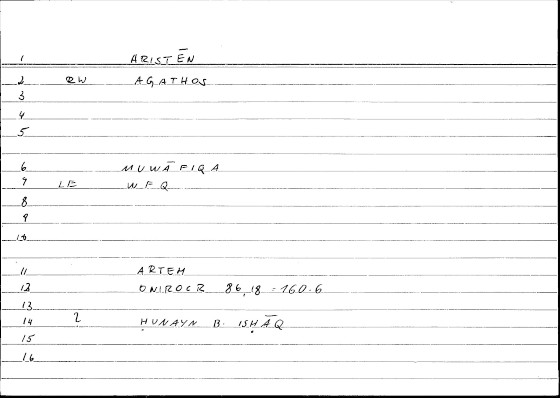 1 ARISTĒN
2 RW AGATHOS
3
4
5
6 MUWĀFIQA
7 LE WFQ
8
9
10
11 ARTEM
12 ONIROCR 86,18 = 160.6
13
14 2 ḤUNAYN B. ISḤĀQ
15
16